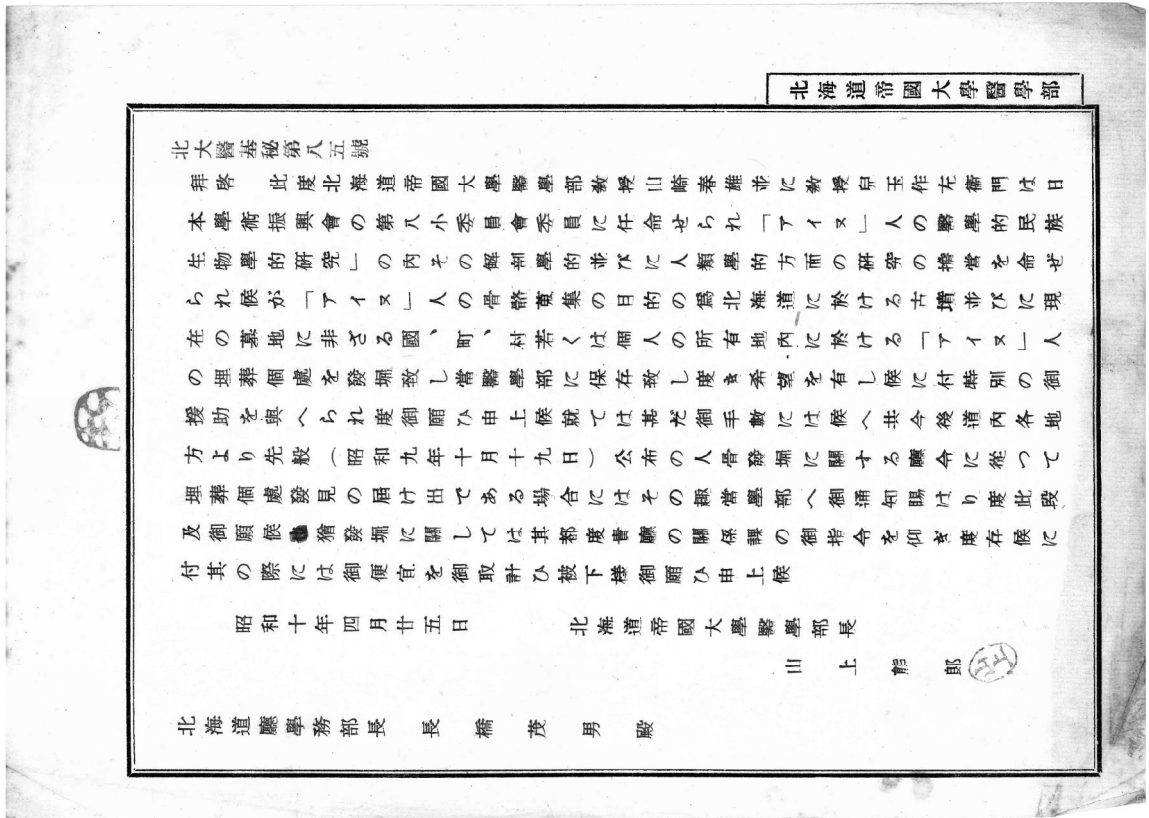 北海道帝國大學醫學部
北大醫基秘第八五號
拜啓 此度北海道帝國大學醫學部教授山崎春雄並に教授兒玉作左衞門は日
本學術振興會の第八小委員會委員に任命せられ「アイヌ」人の醫學的民族
生物學的硏究」の内その解剖學的並びに人類學的方面の硏究の擔當を命ぜ
られ候が「アイヌ」人の骨骼蒐集の目的の爲北海道に於ける古墳並びに現
在の墓地に非ざる國、町、村若くは個人の所有地内に於ける「アイヌ」人
の埋葬個處を發堀致し當醫學部に保存致し度き希望を有し候に付特別の御
援助を與へられ度御願ひ申上候就ては甚だ御手數には候へ共今後道内各地
方より先般（昭和九年十月十九日）公布の人骨發堀に關する廳令に從つて
埋葬個處發見の届け出である場合にはその趣當學部へ御通知賜はり度此段
及御願候 猶發堀に關しては其都度貴廳の關係課の御指令を仰ぎ度存候に
付其の際には御便宜を御取計ひ被下樣御願ひ申上候
昭和十年四月廿五日 北海道帝國大學醫學部長
山上熊郎
北海道廳學務部長 長橋茂男殿